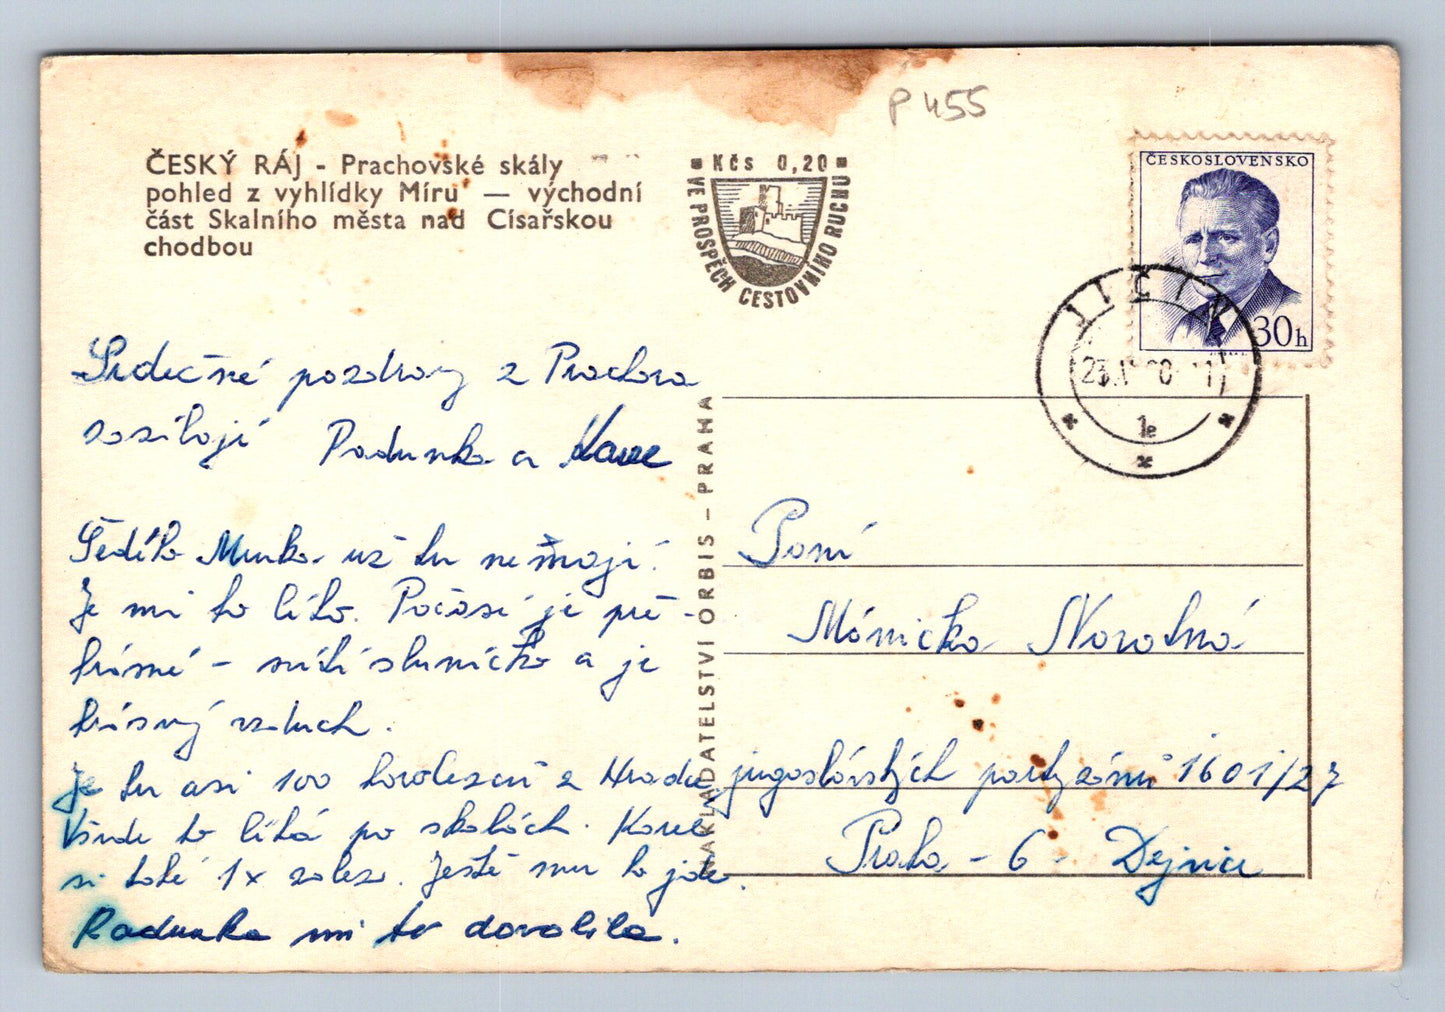 P 455
ČESKÝ RÁJ - Prachovské skály
pohled z vyhlídky Míru — východní
část Skalního města nad Císařskou
chodbou
Kčs 0,20
VE PROSPĚCH CESTOVNÍHO RUCHU
ČESKOSLOVENSKO
30h
JIČÍN
1e
Srdečné pozdravy z Prachova
zasílají Radunka a
už tu nemají.
Je mi to líto. Počasí je pře-
krásné - svítí sluníčko a je
krásný vzduch.
Je tu asi 100 horolezců z Hradce
Všude to lítá po skalách. Karel
si také 1x zalezl. Ještě mu to jde.
Radunka mi to dovolila.
NAKLADATELSTVÍ ORBIS - PRAHA
Paní
Mónička Novotná
jugoslávských partyzánů 1601/27
Praha - 6 - Dejvice